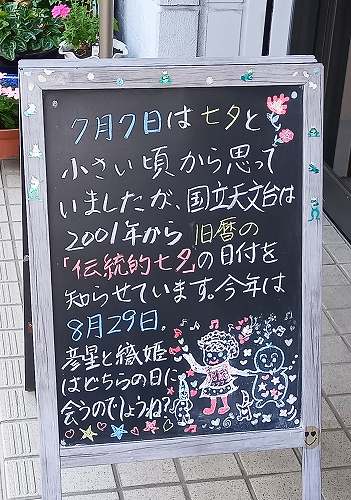 7月7日は七夕と
小さい頃から思って
いましたが、国立天文台は
2001年から旧暦の
「伝統的七夕」の日付を
知らせています。今年は
8月29日。
彦星と織姫
はどちらの日に
会うのでしょうね?